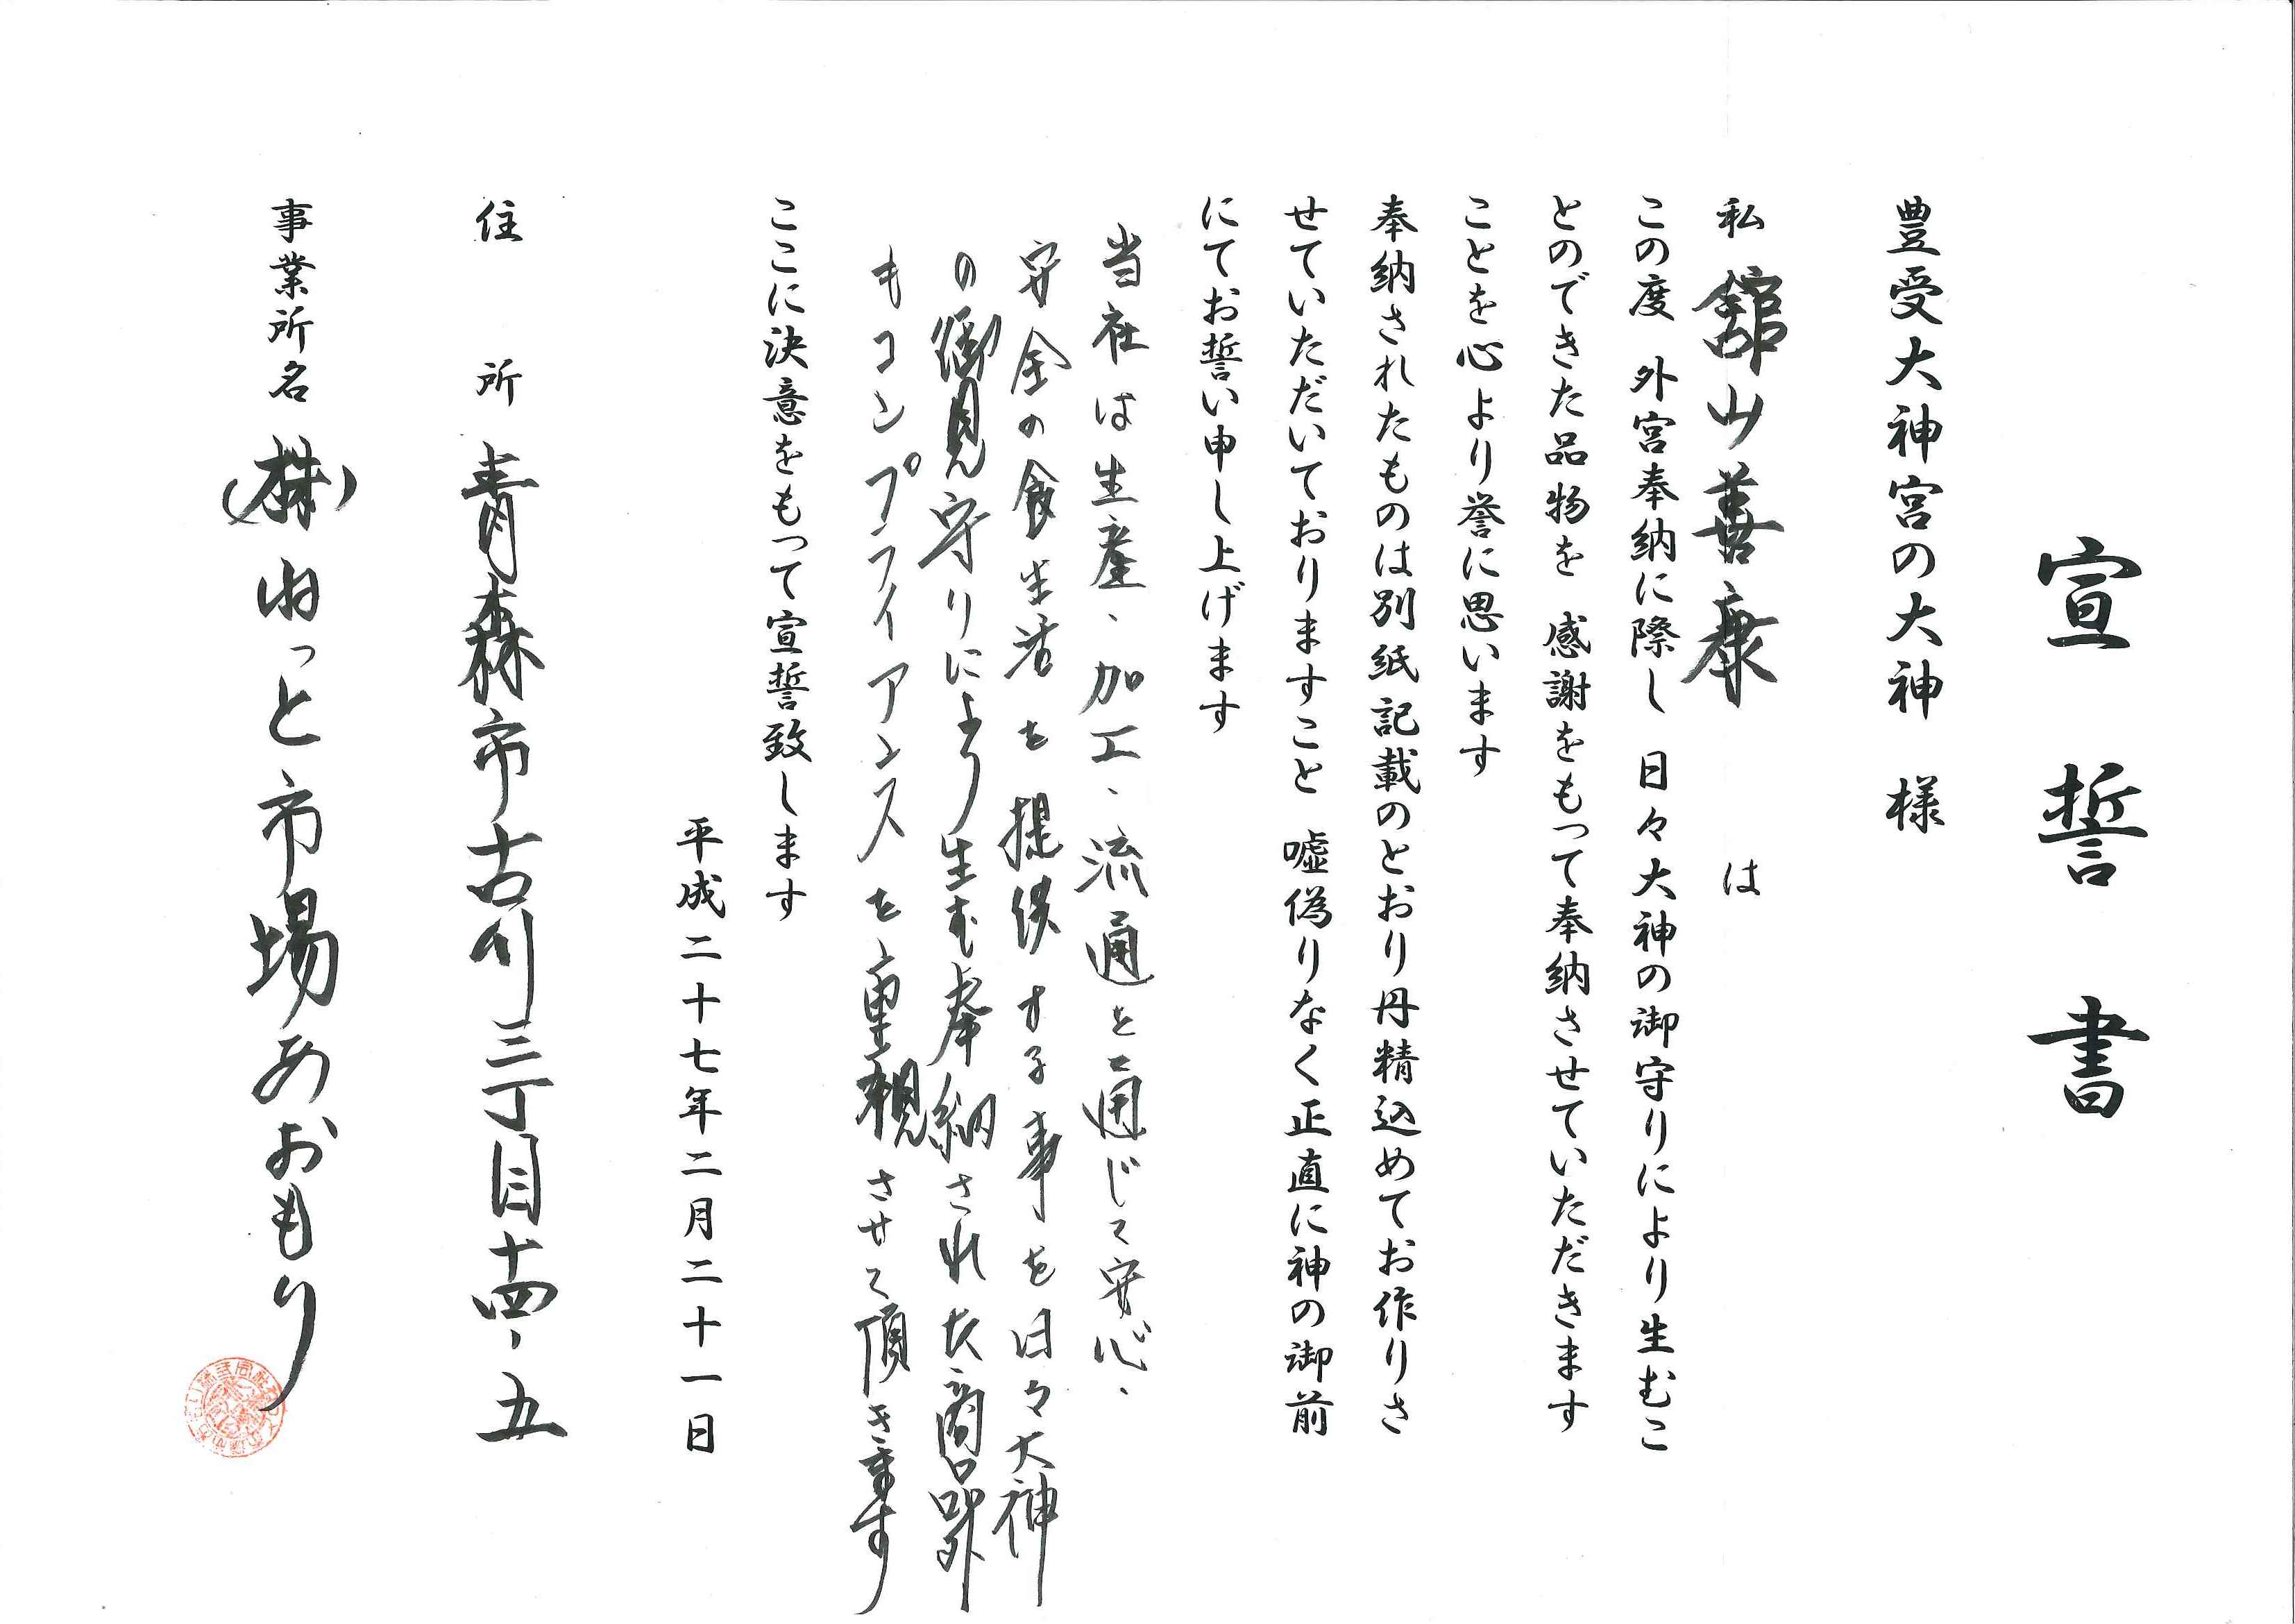 宣誓書
豊受大神宮の大神 様
私 舘山善康 は
この度 外宮奉納に際し 日々大神の御守りにより生むこ
とのできた品物を 感謝をもって奉納させていただきます
ことを心より誉に思います
奉納されたものは別紙記載のとおり丹精込めてお作りさ
せていただいておりますこと 嘘偽りなく正直に神の御前
にてお誓い申し上げます
当社は生産、加工、流通を通じて安心、
安全の食生活を提供する事を日々大神
の御見守りにより生む奉納された商品外
もコンプライアンスを重視させて頂きます
ここに決意をもって宣誓致します
平成二十七年二月二十一日
住所 青森市古川三丁目十四、五
事業所名 (株)ねっと市場あおもり